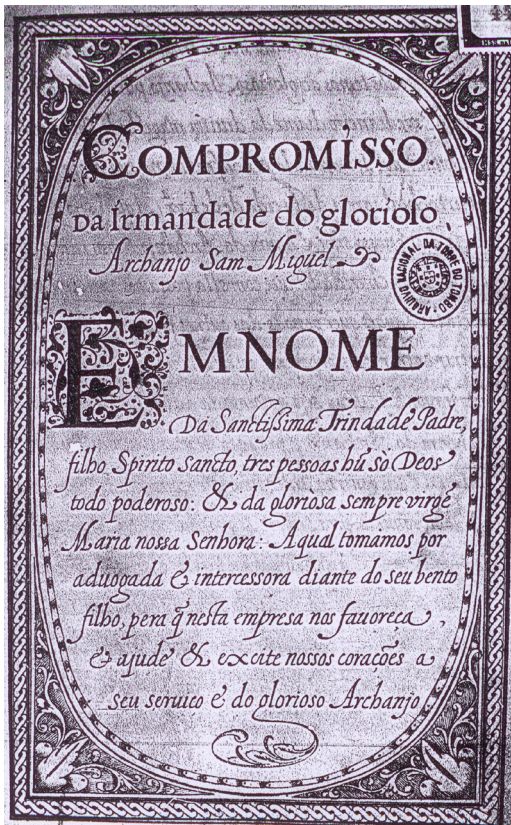 44
COMPROMISSO.
Da Irmandade do glorioſo
Archanjo Sam Miguel
ARQUIVO NACIONAL DA TORRE DO TOMBO
EM NOME
Da Sanctiſsima Trindade Padre,
filho Spirito sancto, tres pessoas hũ sò Deos
todo poderoso: & da gloriosa sempre virgẽ
Maria nossa Senhora: Aqual tomamos por
aduogada & intercessora diante do seu bento
filho, pera q̃ nesta empresa nos fauoreca,
& ajude & excite nossos corações a
seu seruico e do glorioso Archanjo.